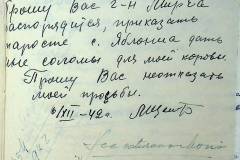 Прошу Вас г-н Мирча
распорядится, приказать
старосте с. Яблонна дать
мне соломы для моей коровы.
Прошу Вас неотказать
моей просьбы.
6/XII - 42г.